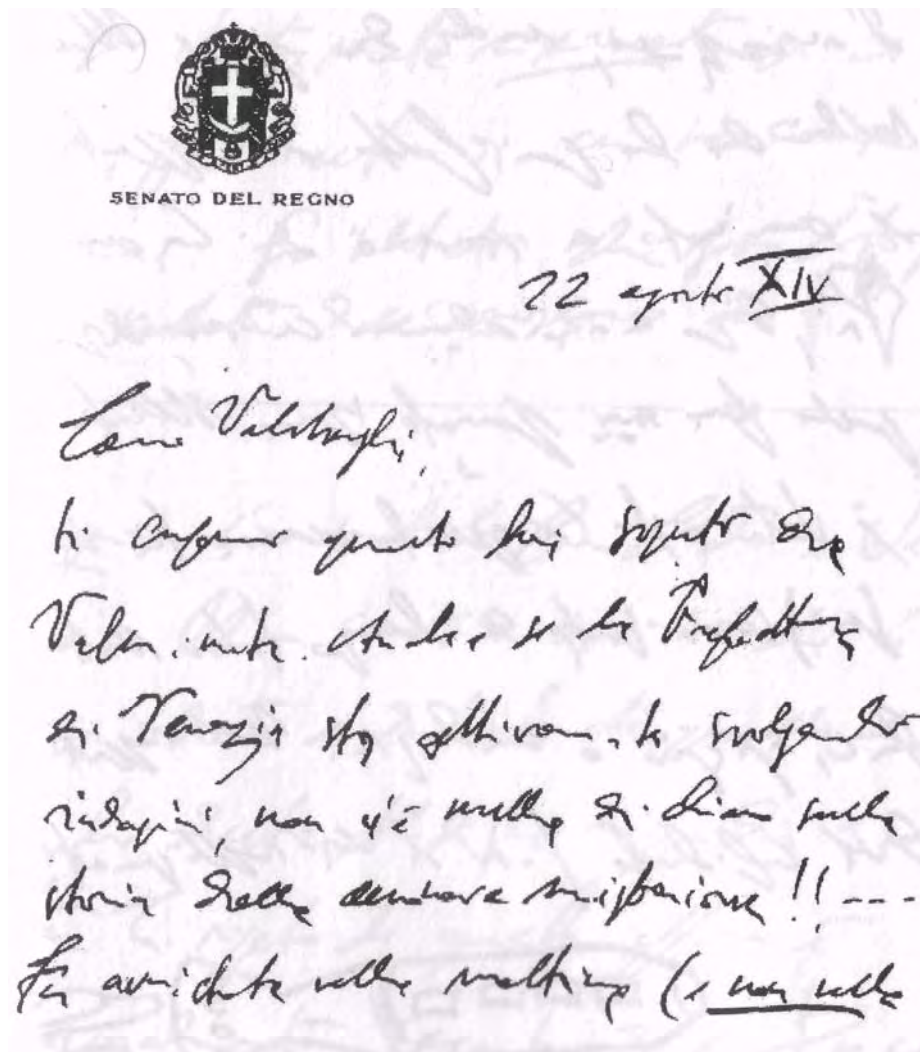 SENATO DEL REGNO
22 agosto XIV
Caro Valbinaghi,
ti confermo quanto hai saputo da
Valminuta. Anche se la Prefettura
di Venezia sta attivamente svolgendo
indagini, non c'è nulla di chiaro sulla
storia della aeronave misteriosa!! ---
Fu avvistata nella mattina (e non nella